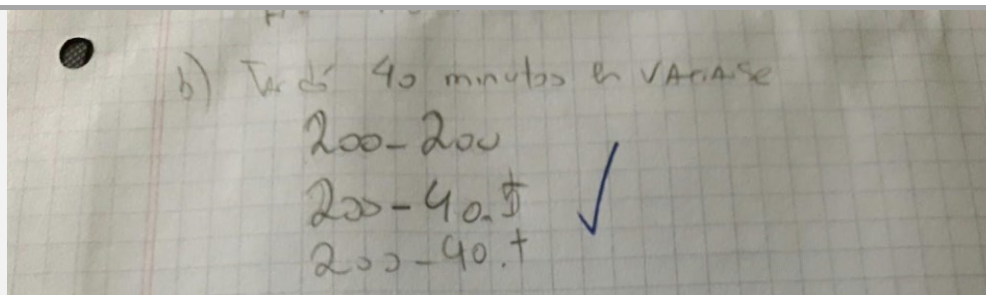 b) Tardó 40 minutos en VAciArse
200-200
200-40.5
200-40.t